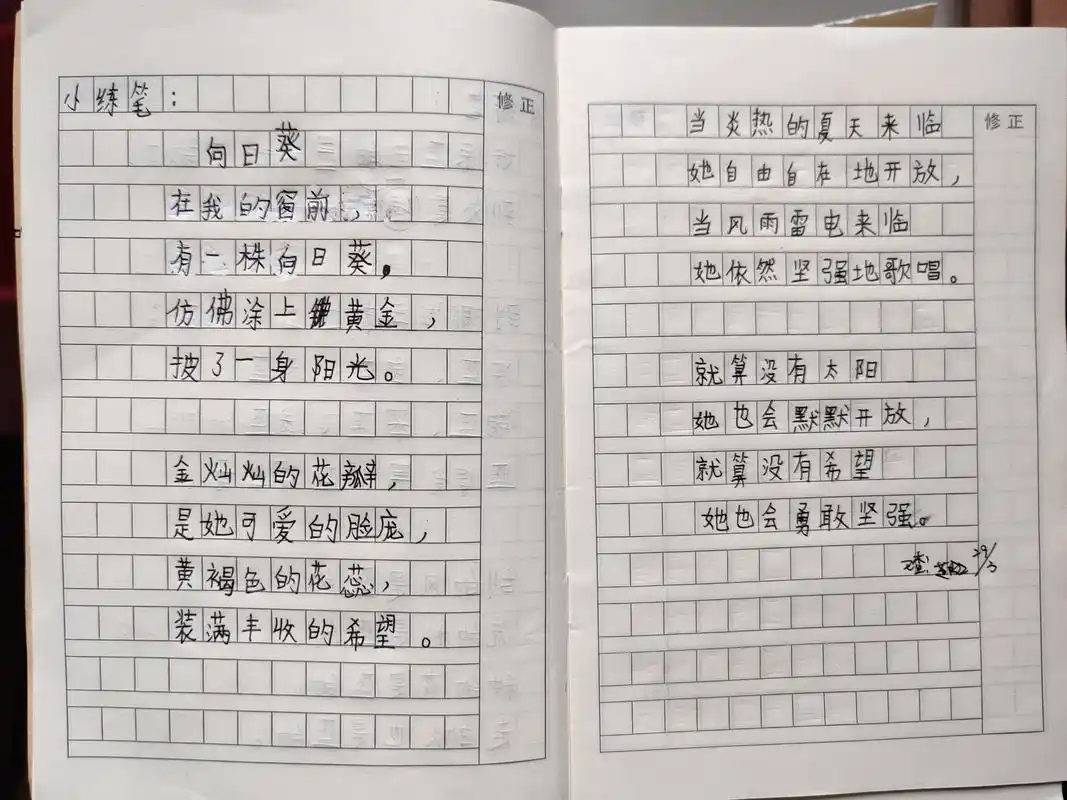 小练笔：
修正
向日葵
在我的窗前，
有一株向日葵。
仿佛涂上黄金，
披了一身阳光。
金灿灿的花瓣，
是她可爱的脸庞，
黄褐色的花蕊，
装满丰收的希望。
修正
当炎热的夏天来临
她自由自在地开放，
当风雨雷电来临
她依然坚强地歌唱。
就算没有太阳
她也会默默开放，
就算没有希望
她也会勇敢坚强。
29/3